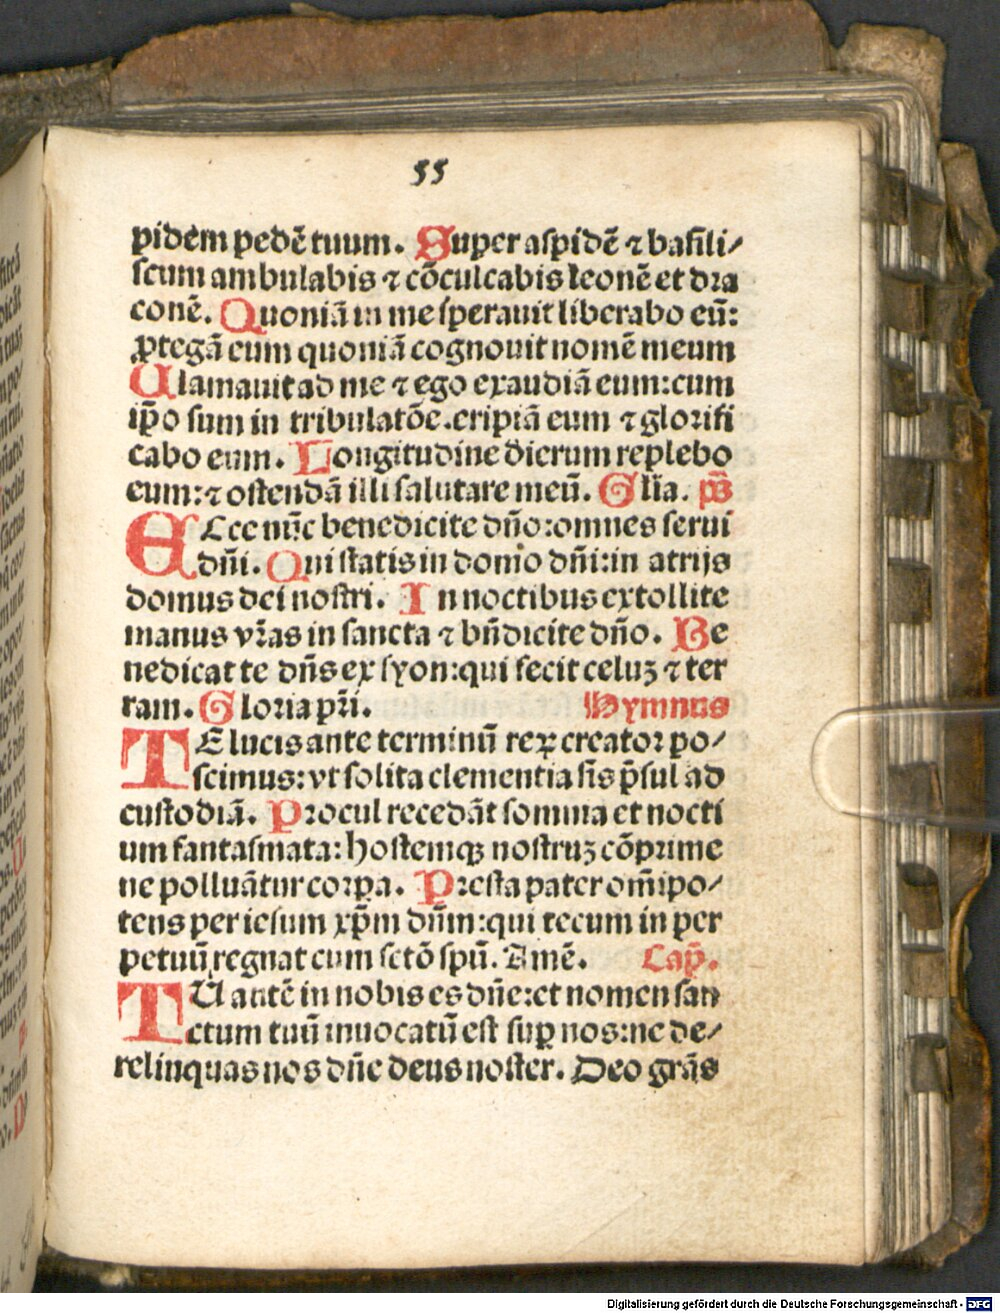 55
pidem pedē tuum. Super aspidē ⁊ basili/
scum ambulabis ⁊ cōculcabis leonē et dra
conē. Quoniā in me sperauit liberabo eū:
ꝓtegā eum quoniā cognouit nomē meum
Clamauit ad me ⁊ ego exaudiā eum: cum
ip̄o sum in tribulatōe. eripiā eum ⁊ glorifi
cabo eum. Longitudine dierum replebo
eum: ⁊ ostendā illi salutare meū. Gl̄ia. ps̄
ECce nūc benedicite dn̄o: omnes serui
dn̄i. Qui statis in domo dn̄i: in atrijs
domus dei nostri. In noctibus extollite
manus vr̄as in sancta ⁊ bn̄dicite dn̄o. Be
nedicat te dn̄s ex syon: qui fecit celuꝫ ⁊ ter
ram. Gloria pr̄i. Hymnus
TE lucis ante terminū reꝝ creator po/
scimus: vt solita clementia sis p̄sul ad
custodiā. Procul recedāt somnia et nocti
um fantasmata: hostemqꝫ nostruꝫ cōprime
ne polluātur corpa. Presta pater om̄ipo/
tens per iesum xp̄m dn̄m: qui tecum in per
petuū regnat cum sctō spū. Amē. Cap̄.
TU autē in nobis es dn̄e: et nomen san
ctum tuū inuocatū est suꝑ nos: ne de/
relinquas nos dn̄e deus noster. Deo grās
Digitalisierung gefördert durch die Deutsche Forschungsgemeinschaft - DFG